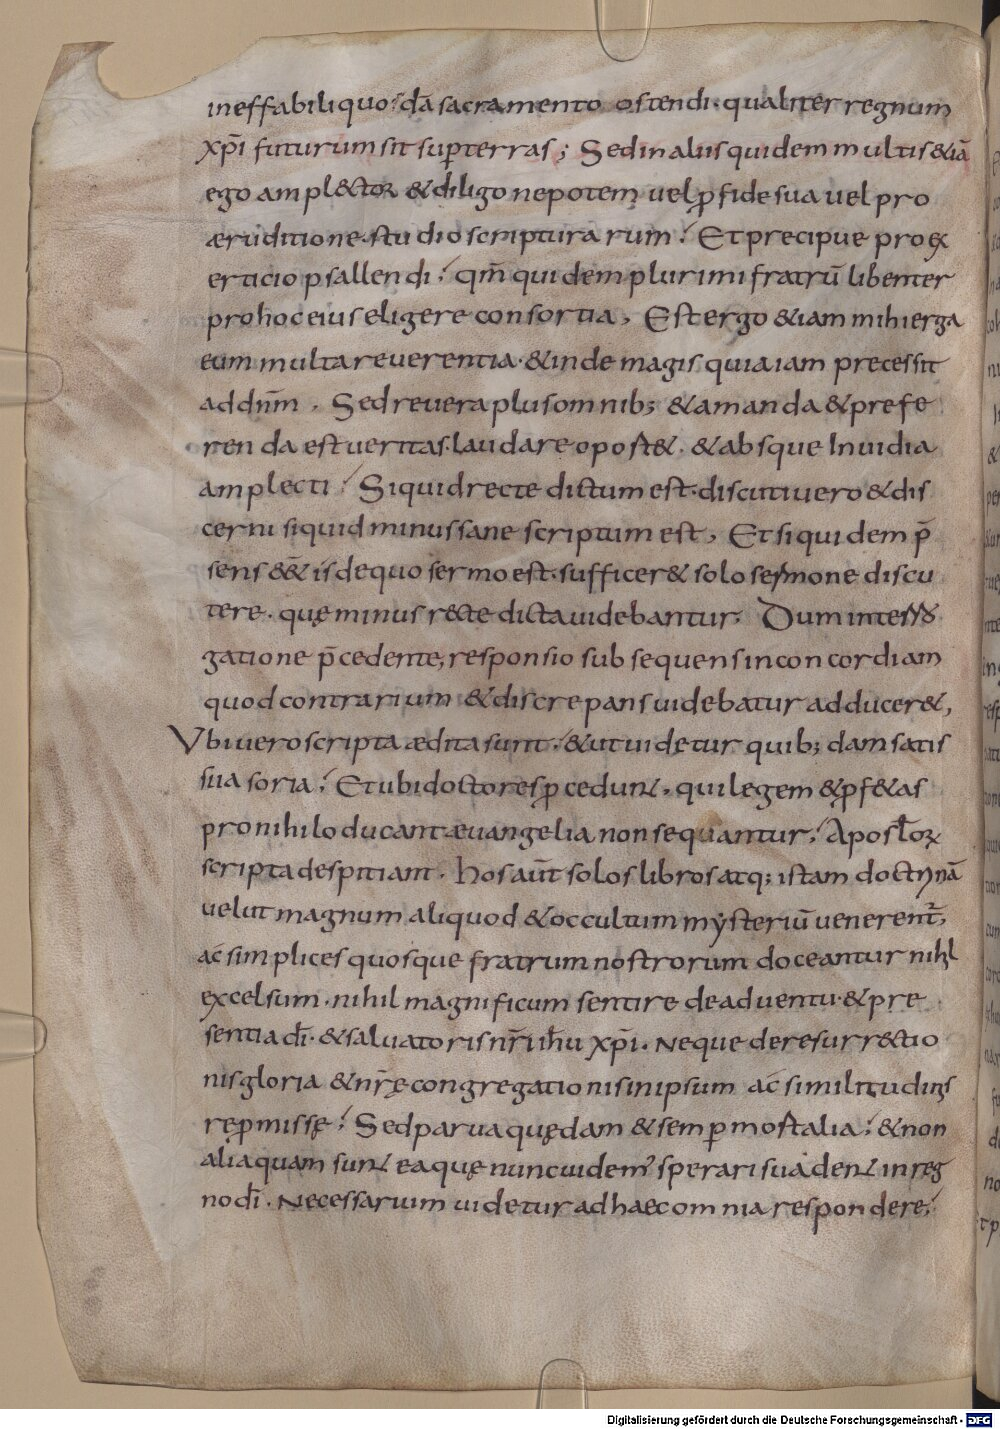 ineffabili quodā sacramento ostendi · qualiter regnum
xp̄i futurum sit sup̲ terras ; Sed in aliis quidem multis &iā
ego amplector & diligo nepotem uel p̲ fide sua uel pro
æruditione · studio scripturarum ; Et precipue pro ex
erticio psallendi ; qm̄ quidem plurimi fratrū libenter
pro hoc eius eligere consortia , Est ergo &iam mihi erga
eum multa reuerentia · & inde magis quia iam precessit
ad dnm̄ . Sed reuera plus omnib; & amanda & prefe
renda est ueritas · laudare oport& · & absque Inuidia
amplecti ; Si quid recte dictum est · discuti uero & dis
cerni siquid minus sane scriptum est , Et siquidem p̄
sens &&̄ is de quo sermo est · sufficer& solo sermone discu
tere · quę minus recte dicta uidebantur , Dum interro
gatione p̄cedente, responsio subsequens in concordiam
quod contrarium & discrepans uidebatur adducer& ,
Vbi uero scripta ædita sunt ; & ut uidetur quib;dam satis
suasoria ; Et ubi doctores p̲cedunt , qui legem & p̲f&as
pro nihilo ducant æuangelia non sequantur ; Apostl̄oꝝ
scripta despitiant . hos aūt solos libros atq; istam doctrynā
uelut magnum aliquod & occultum mysteriū uenerent̄,
ac simplices quosque fratrum nostrorum doceantur nihil
excelsum · nihil magnificum sentire de aduentu · & pre
sentia dī · & saluatoris nr̄i ih̄u xp̄i . Neque de resurr&tio
nis gloria & nr̄ę congregationis in ipsum ac similitudinis
rep̲missę ; Sed parua quędam & semp̲ mortalia ; & non
alia quam sunt ea quę nunc uidem̓ sperari suadent in reg
no dī . Necessarium uidetur ad haec omnia respondere ;
Digitalisierung gefördert durch die Deutsche Forschungsgemeinschaft - DFG